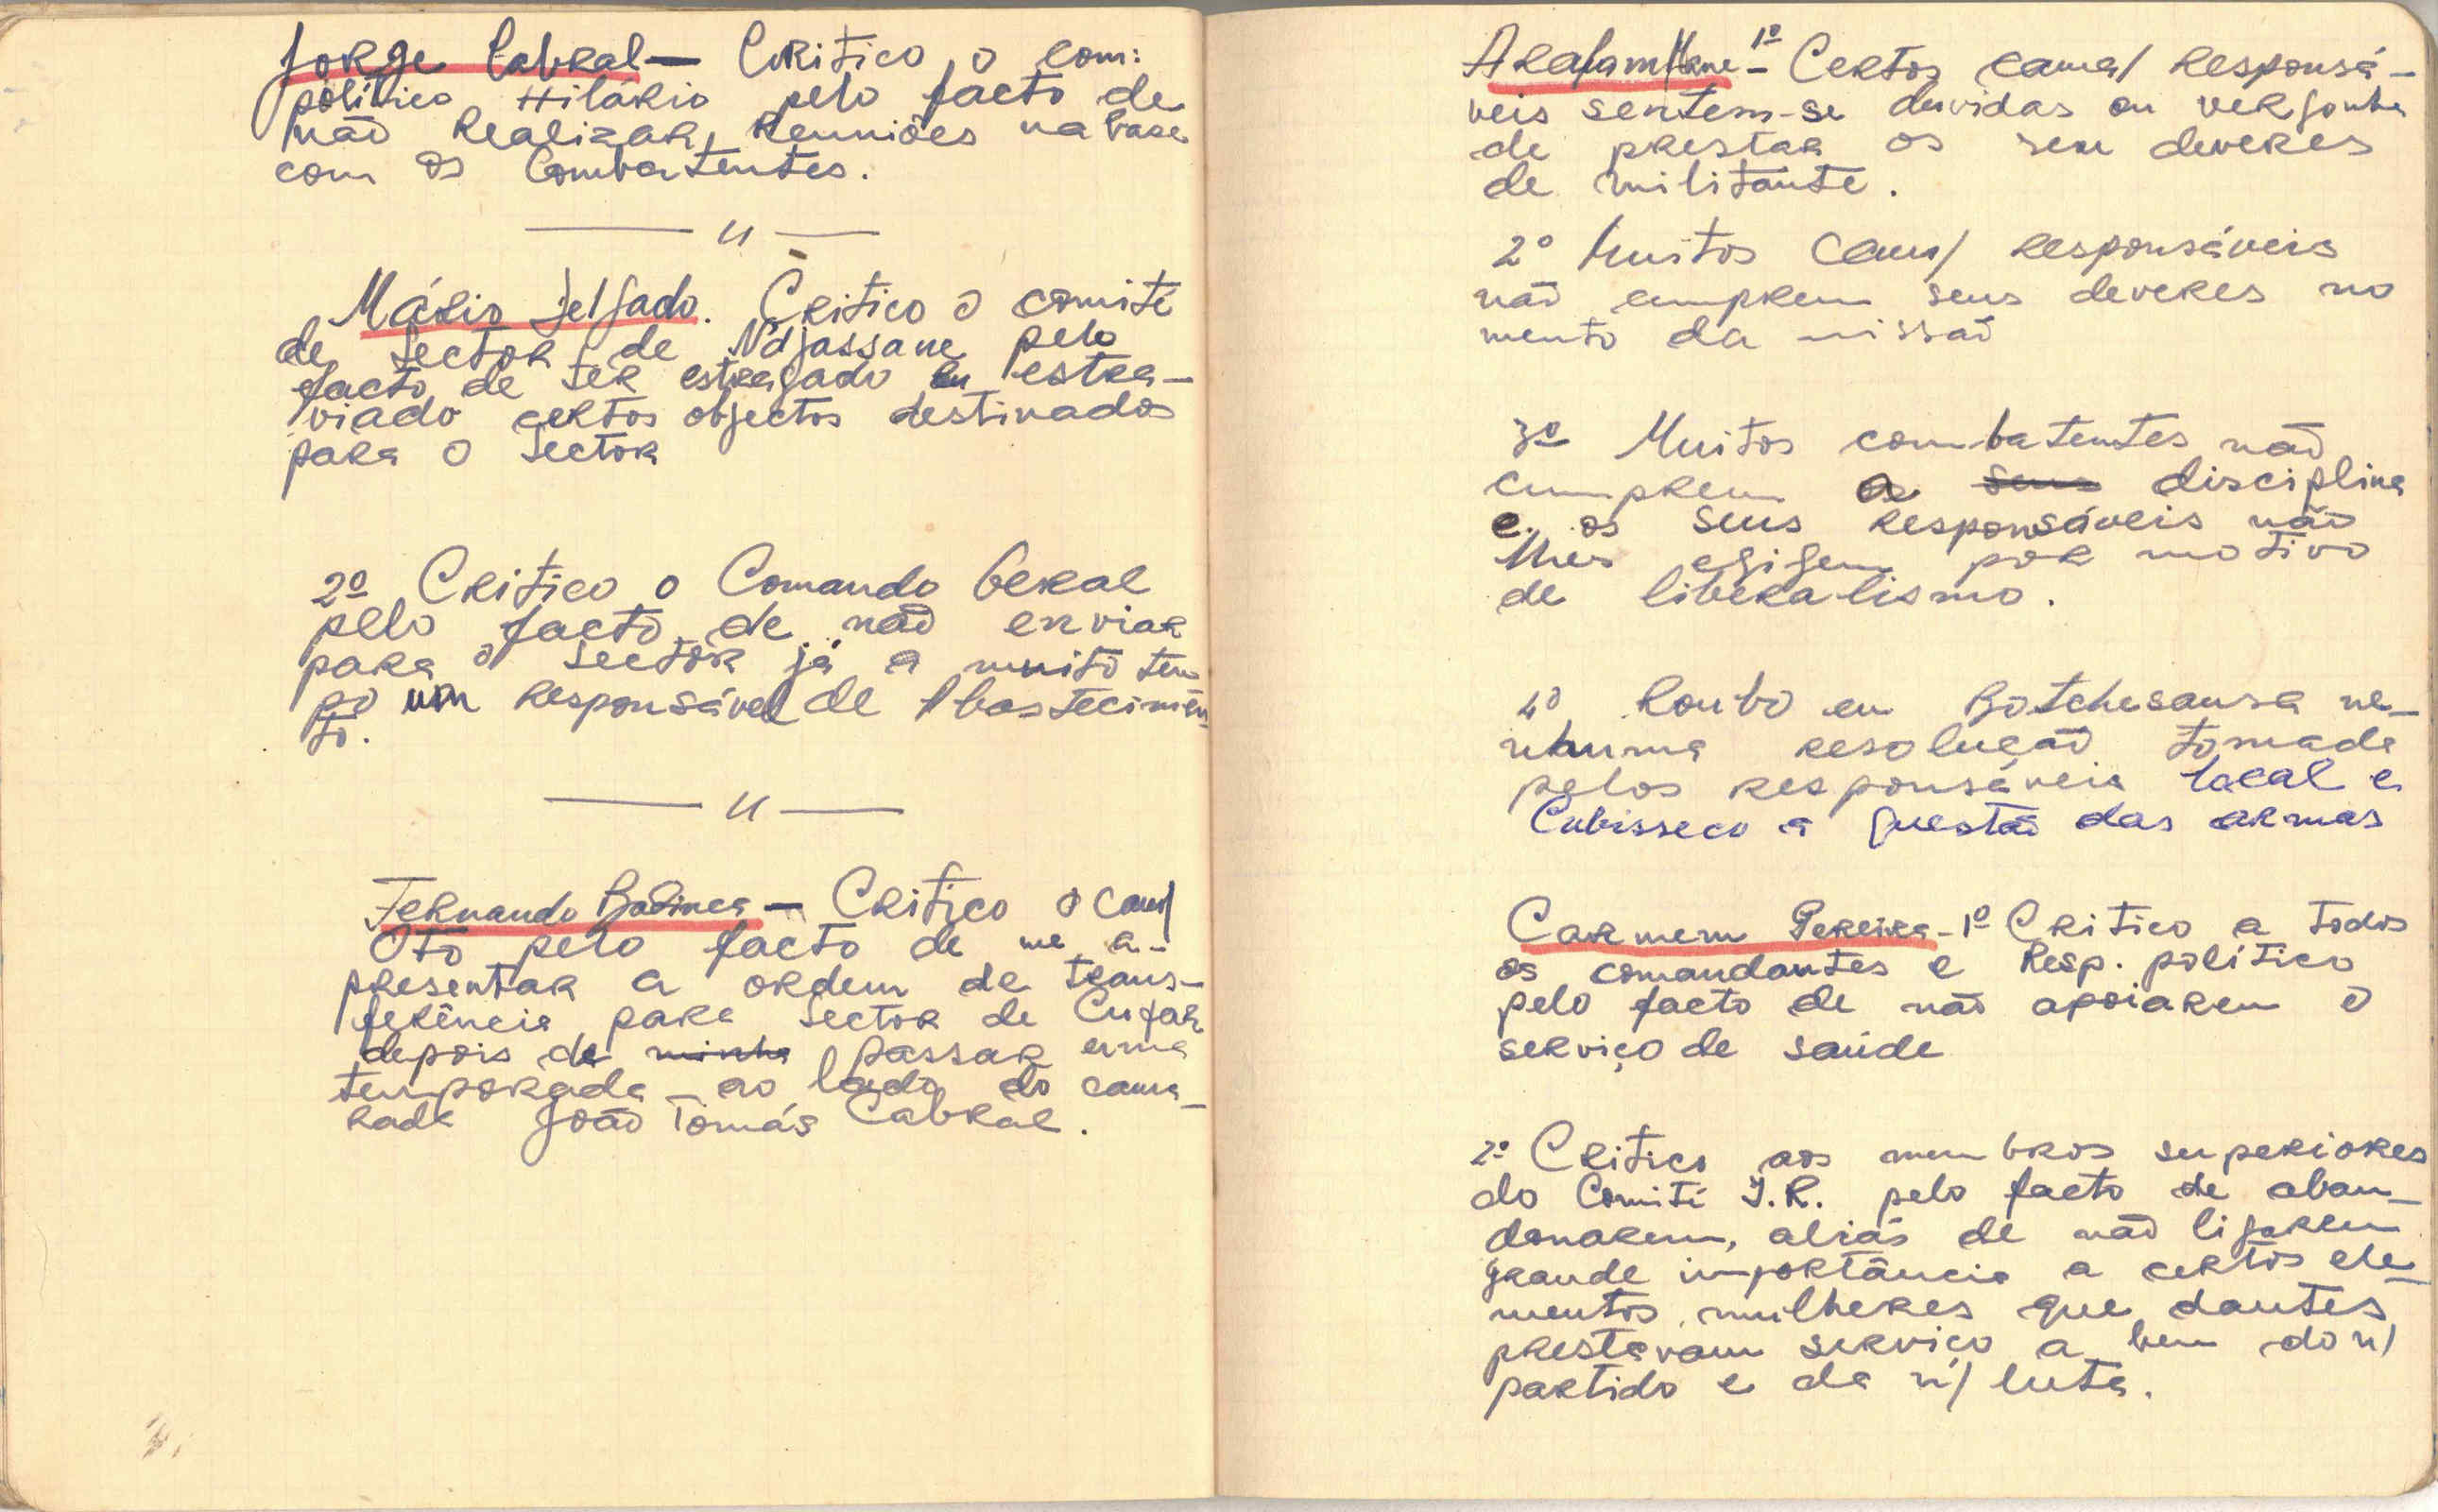 Jorge Cabral — Critico o com:
político Hilário pelo facto de
não realizar reuniões na base
com os Combatentes.
— " —
Mário Delgado. Critico o comité
de Sector de N'djassane pelo
facto de ter estragado ou estra-
viado certos objectos destinados
para o Sector
2º Critico o Comando Geral
pelo facto de não enviar
para o Sector já a muito tem
po um responsável de Abastecimen
to.
— " —
Fernando — Critico o cam/
Otó pelo facto de me a-
presentar a ordem de trans-
ferência para Sector de Cufar
depois de minha passar uma
temporada ao lado do cama-
rada João Tomás Cabral.
Arafam Mane - 1º Certos cama/ responsá-
veis sentem-se duvidas ou vergonha
de prestar os seu deveres
de militante.
2º Muitos Cam/ responsáveis
não cumprem seus deveres no
mento da missão
3º Muitos combatentes não
cumprem a seus disciplina
e os seus responsáveis não
lhes egigem por motivo
de liberalismo.
4º Roubo em Botchesansa ne-
nhuma resolução tomada
pelos responsáveis local e
Cubisseco a questão das armas
Carmem Pereira - 1º Critico a todos
os comandantes e Resp. político
pelo facto de não apoiarem o
serviço de saúde
2º Critico aos membros superiores
do Comité I.R. pelo facto de aban-
donarem, aliás de não ligarem
grande importância a certos ele-
mentos mulheres que dantes
prestavam serviço a bem do n/
partido e da n/ luta.